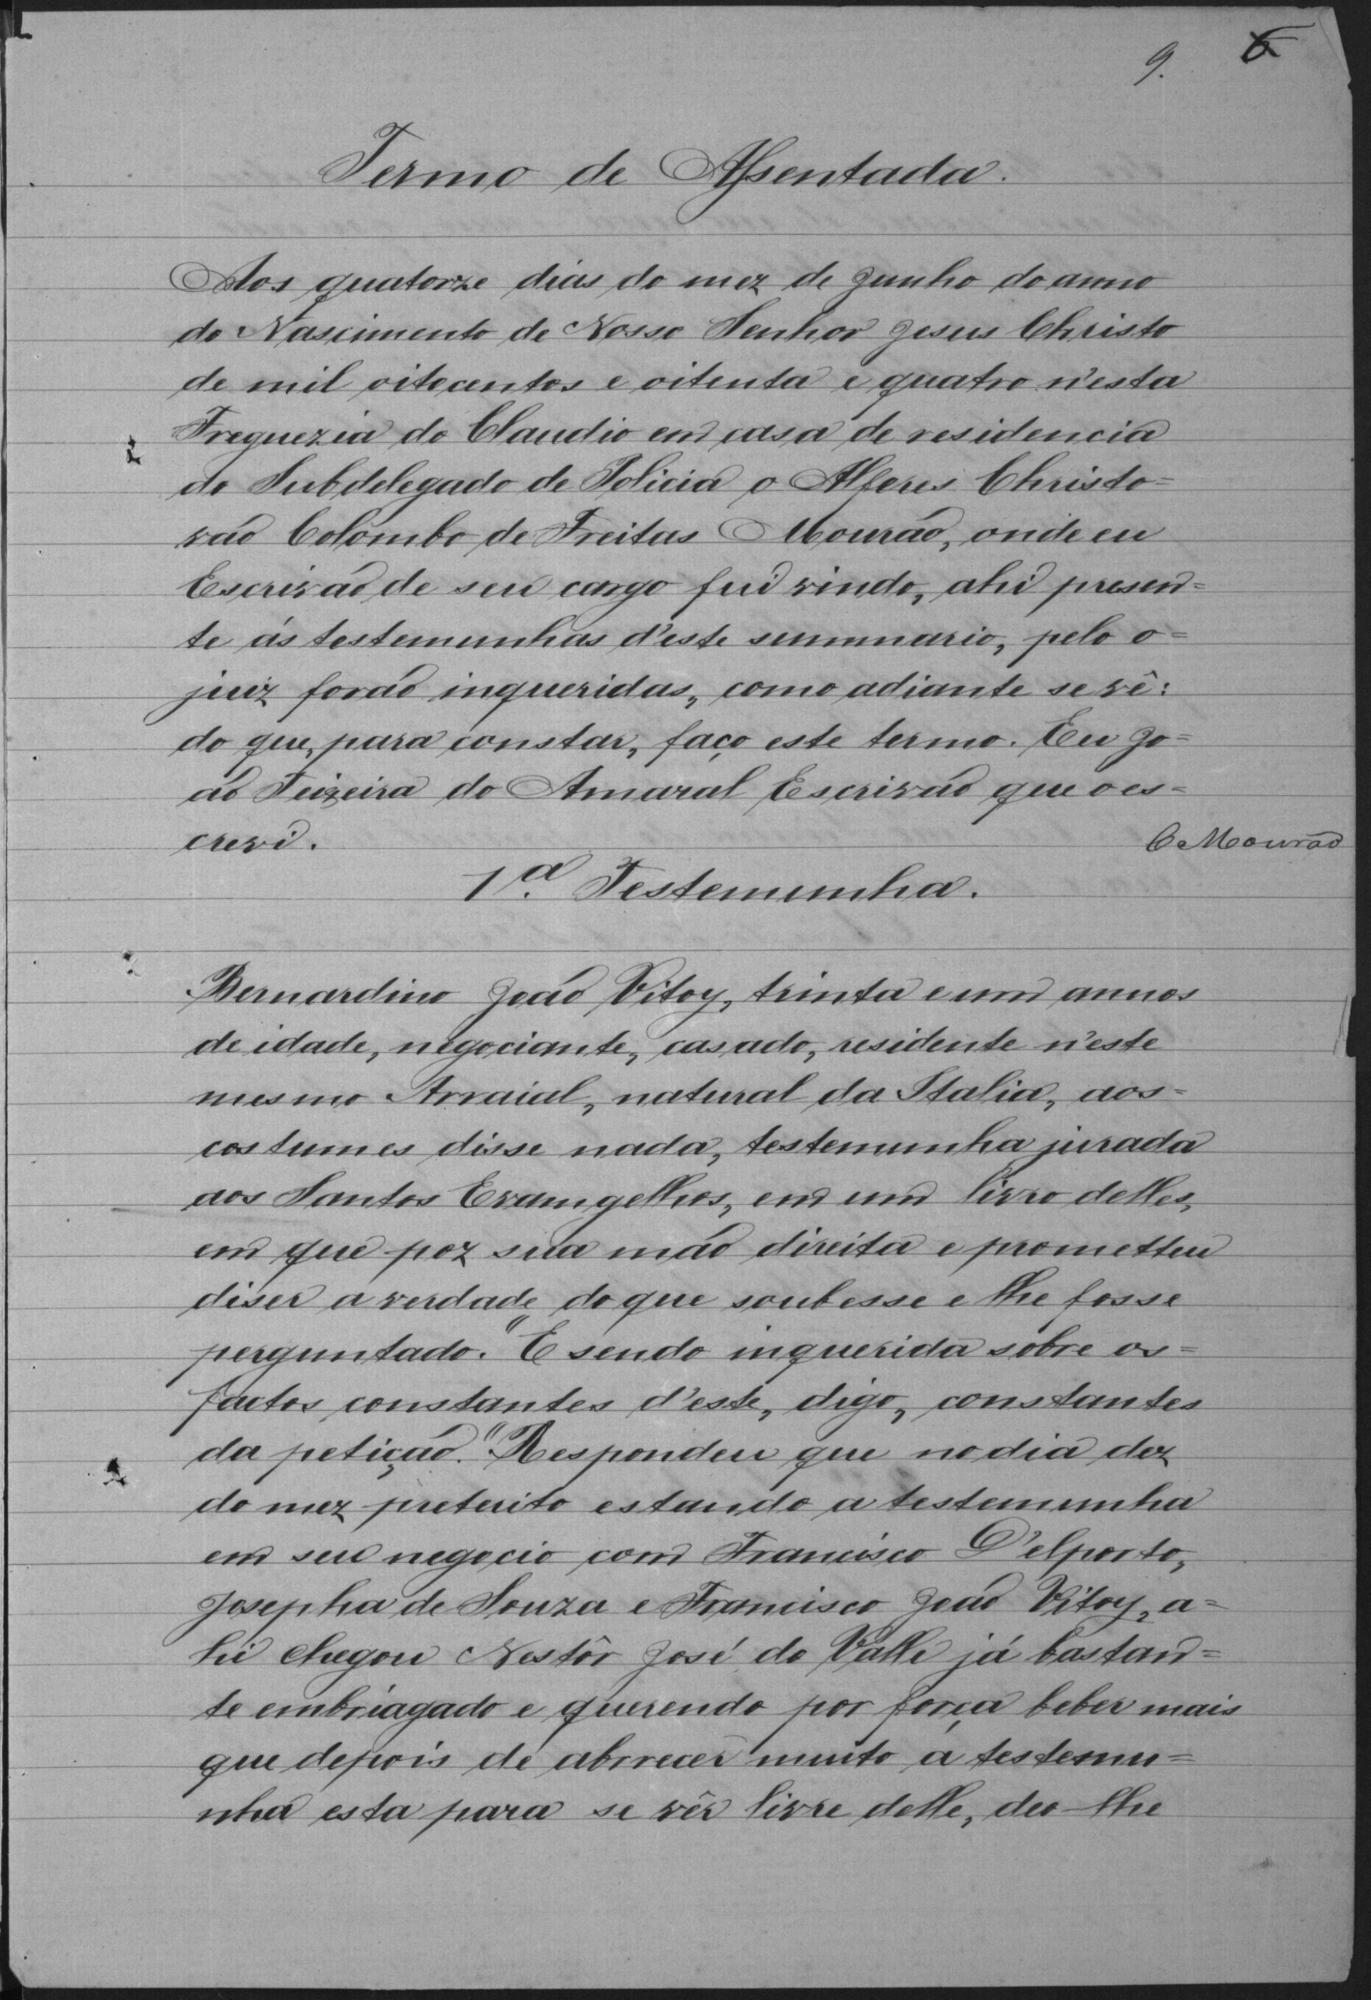 9. 6
Termo de Assentada.
Aos quatorze dias do mez de Junho do anno
do Nascimento de Nosso Senhor Jesus Christo
de mil oitocentos e oitenta e quatro n'esta
Freguezia do Claudio em casa de residencia
do Subdelegado de Policia o Alferes Christo=
vão Colombo de Freitas Mourão, onde eu
Escrivão de seu cargo fui vindo, ahi presen=
te ás testemunhas d'este summario, pelo o=
juiz forão inqueridas, como adiante se vê:
do que, para constar, faço este termo. Eu Jo=
ão Teixeira do Amaral Escrivão que o es=
crevi.
C Mourão
1ª Testemunha.
Bernardino João Vitoy, trinta e um annos
de idade, negociante, casado, residente n'este
mesmo Arraial, natural da Italia, aos=
costumes disse nada, testemunha jurada
aos Santos Evangelhos, em um livro delles,
em que poz sua mão direita e prometteu
diser a verdade do que soubesse e lhe fosse
perguntado. "E sendo inquerida sobre os=
factos constantes d'este, digo, constantes
da petição. "Respondeu que no dia dez
do mez preterito estando a testemunha
em seu negocio com Francisco D'elporto,
Josepha de Souza e Francisco João Vitoy, a=
hi chegou Nestôr José do Valle já bastan=
te embriagado e querendo por força beber mais
que depois de aborrecer muito a testemu=
nha esta para se vêr livre delle, deo-lhe